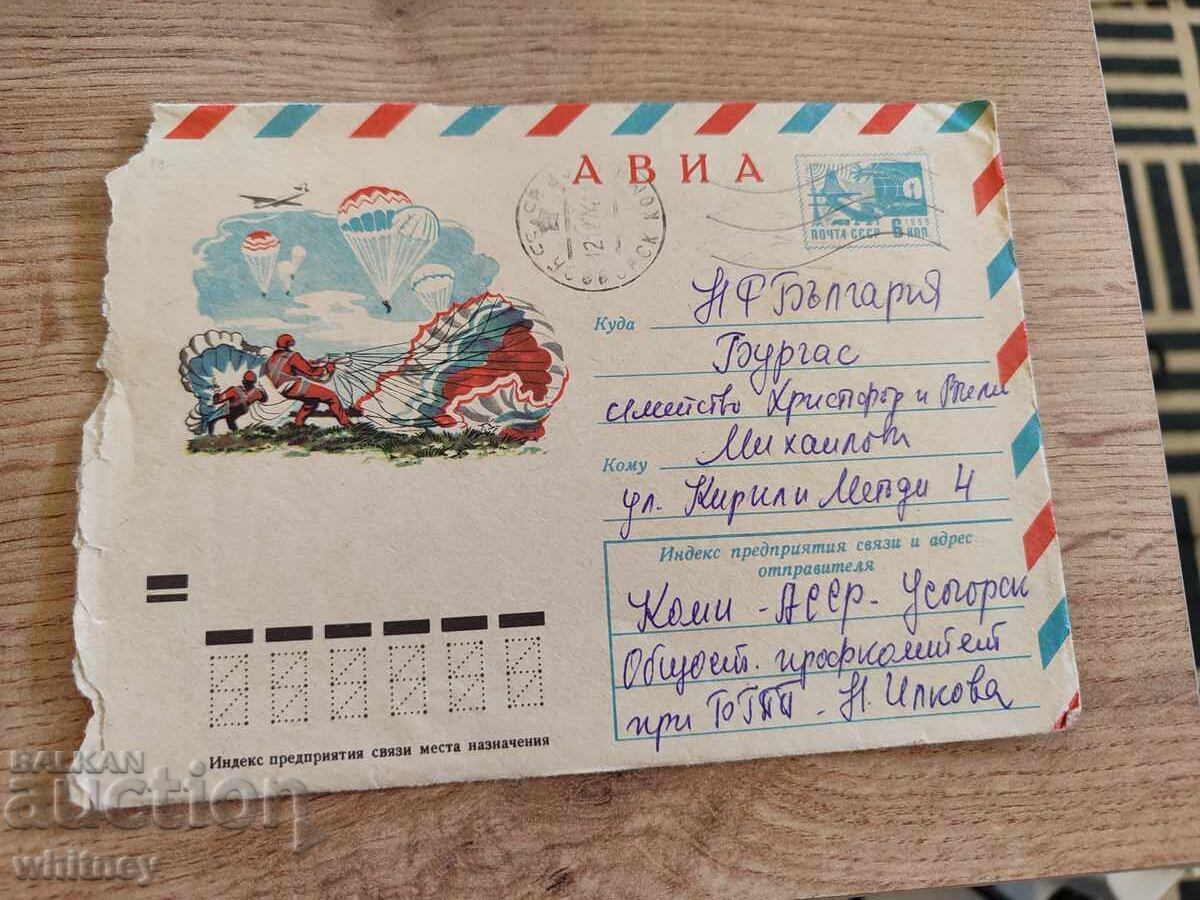 АВИА
1966
ПОЧТА СССР 6 КОП.
СССР
12
Куда НР България
Бургас
семейство Христофор и
Кому Михаилови
ул. Кирил и Методи 4
Индекс предприятия связи и адрес
отправителя
Коми - АССР - Усогорск
Общост. профкомитет
при БГТП - Н. Илкова
Индекс предприятия связи места назначения
BALKAN
auction
whitney